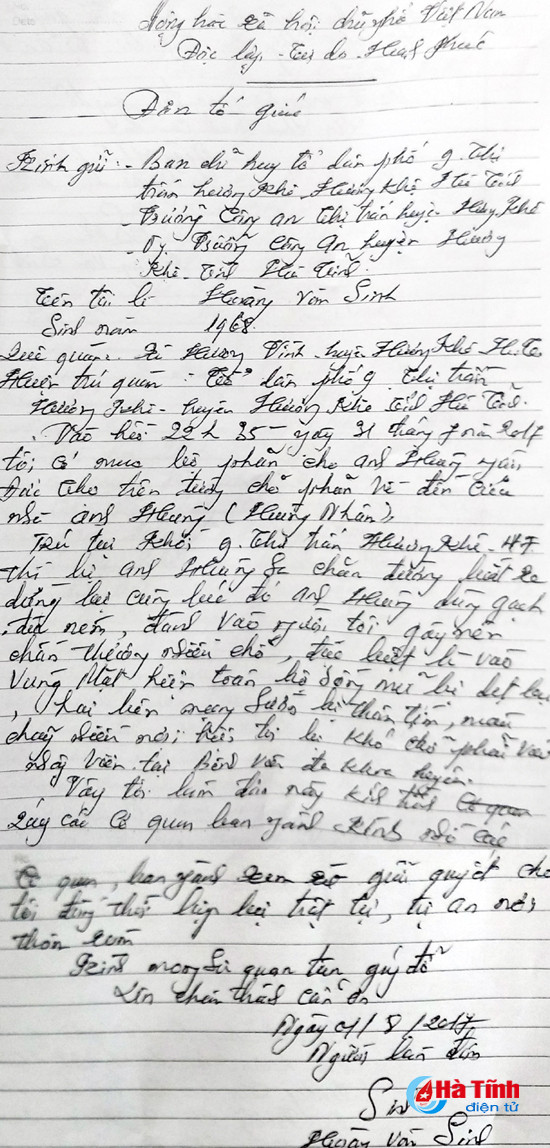 Cộng hòa xã hội chủ nghĩa Việt Nam
Độc lập - Tự do - Hạnh phúc
Đơn tố giác
Kính gửi: - Ban chỉ huy tổ dân phố 9. Thị
trấn Hương Khê, Hương Khê Hà Tĩnh
- Trưởng Công an thị trấn huyện Hương Khê
Trưởng Công An huyện Hương
Khê - Tỉnh Hà Tĩnh.
Tên tôi là Hoàng Văn Sinh
Sinh năm 1968.
Quê quán: Xã Hương Vĩnh - huyện Hương Khê - H.
Hiện trú quán: Tổ dân phố 9 Thị trấn
Hương Khê - huyện Hương Khê tỉnh Hà Tĩnh.
Vào hồi 22h 35 - ngày 31 tháng 7 năm 2017
tôi có mua lô phần cho anh Hùng
Đức Thọ trên đường chở phần về đến cửa
nhà anh Hùng (Hùng Nhân),
Trú tại Khối 9. Thị trấn Hương Khê - HT
thì bị anh Hùng ra chặn đường bắt xe
dừng lại cùng lúc đó anh Hùng dùng gạch
đá ném, đánh vào người tôi gây nên
chấn thương nhiều chỗ, đặc biệt là vào
Vùng Mặt hiện toàn bộ sống mũi bị dẹt
, hai bên mạng sườn bị thâm tím, máu
chảy nhiều nơi, hiện tôi bị khó thở phải vào
viện tại Bệnh viện đa khoa huyện.
Vậy tôi làm đơn này kính trình Cơ quan
Quý cấp Cơ quan ban ngành Kính nhờ các
Cơ quan, ban ngành xem xét giải quyết cho
tôi đồng thời lập lại trật tự, trị an nơi
thôn xóm
Kính mong sự quan tâm giúp đỡ
Xin chân thành cảm ơn
Ngày 01/8/2017
Người làm đơn
Sinh
Hoàng Văn Sinh
Hà Tĩnh
điện tử